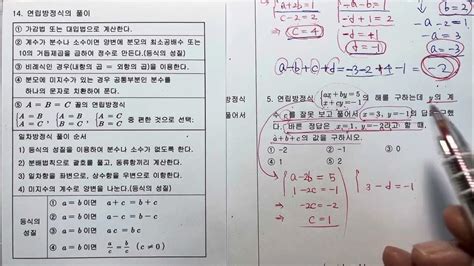 14. 연립방정식의 풀이
① 가감법 또는 대입법으로 계산한다.
② 계수가 분수나 소수이면 양변에 분모의 최소공배수 또는
10의 거듭제곱을 곱하여 정수로 만든다.(등식의 성질)
③ 비례식인 경우(내항의 곱 = 외항의 곱)을 이용한다.
④ 분모에 미지수가 있는 경우 공통부분인 분수를
하나의 문자로 치환하여 푼다.
⑤ A=B=C 꼴의 연립방정식
{A=B {A=B {A=C
{A=C, {B=C, {B=C 중 편한 것으로 선택
일차방정식 풀이 순서
1) 등식의 성질을 이용하여 분수나 소수를 없앤다.
2) 분배법칙으로 괄호를 풀고, 동류항끼리 계산한다.
3) 일차항을 좌변으로, 상수항을 우변으로 이항한다.
4) 미지수의 계수로 양변을 나눈다.(등식의 성질)
등식의
성질
① a=b이면 a+c=b+c
② a=b이면 a-c=b-c
③ a=b이면 ac=bc
④ a=b이면 a/c=b/c (c≠0)
방정식
c-2=2
⇒ c=4
-a-2=1
-a=3
a=-3
a+b+c+d=-3-2+4-1=-2
5. 연립방정식 {ax+by=5
{x+cy=-1 의 해를 구하는데 y의 계
수 c를 잘못 보고 풀어서 x=3, y=-1의 답을 구했
다. 바른 정답은 x=1, y=-2라고 할 때,
a+b+c의 값을 구하시오.
① -2 ② -1 ③ 0
④ 1 ⑤ 2
{a-2b=5
{1-2c=-1
⇒ -2c=-2
⇒ c=1
3-d=-1